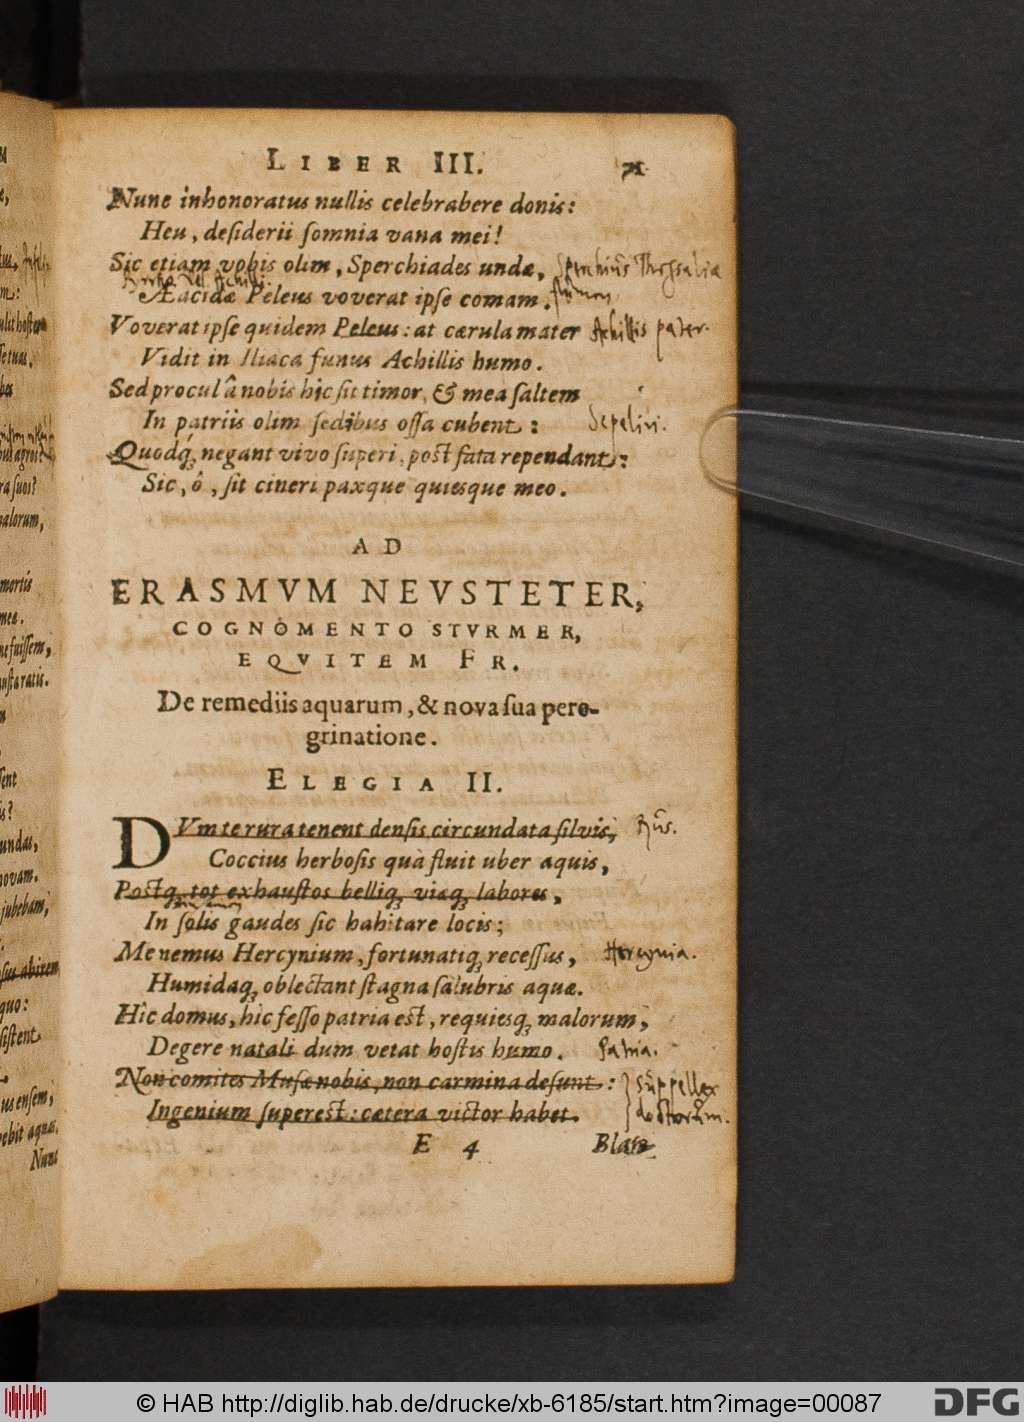 LIBER III. 71
Nunc inhonoratus nullis celebrabere donis:
Heu, desiderii somnia vana mei!
Sic etiam vobis olim, Sperchiades undæ,
Æacidæ Peleus voverat ipse comam.
Voverat ipse quidem Peleus: at cærula mater Achillis pater.
Vidit in Iliaca funus Achillis humo.
Sed procul â nobis hic sit timor, & mea saltem
In patriis olim sedibus ossa cubent: Sepeliri.
Quodq́; negant vivo superi, post fata rependant:
Sic, ô, sit cineri paxque quiesque meo.
AD
ERASMVM NEVSTETER,
COGNOMENTO STVRMER,
EQVITEM FR.
De remediis aquarum, & nova sua pere-
grinatione.
ELEGIA II.
DVm te rura tenent densis circundata silvis,
Coccius herbosis quà fluit uber aquis,
Postq; tot exhaustos belliq; viæq; labores,
In solis gaudes sic habitare locis;
Me nemus Hercynium, fortunatiq; recessus, Hercynia.
Humidaq; oblectant stagna salubris aquæ.
Hîc domus, hic fesso patria est, requiesq; malorum,
Degere natali dum vetat hostis humo. Patria.
Non comites Musæ nobis, non carmina desunt:
Ingenium superest: cætera victor habet.
E 4 Blan-
mortis
fuissem,
undas,
jubebam,
abirem
quo:
sistent
Nunc
© HAB http://diglib.hab.de/drucke/xb-6185/start.htm?image=00087
DFG